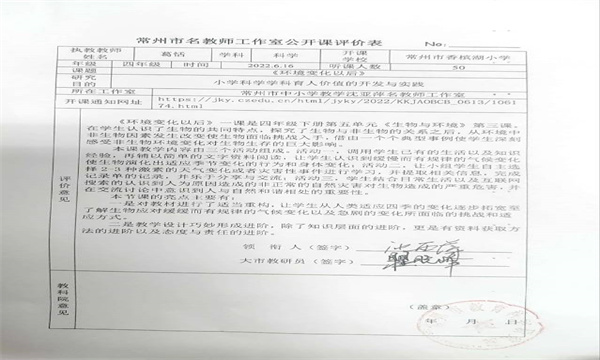 常州市名教师工作室公开课评价表 No:
执教教师姓名 葛恬 学科 科学 开课学校 常州市香槟湖小学
年级 四年级 时间 2022.6.16 听课人数 50
课题 《环境变化以后》
研究目的 小学科学学科育人价值的开发与实践
所在工作室 常州市中小学教学沈亚萍名教师工作室
开课通知网址 https://jky.czedu.cn/html/jyky/2022/KKJAOBCB_0613/106174.html
评价意见
《环境变化以后》一课是四年级下册第五单元《生物与环境》第三课。
在学生认识了生物的共同特点，探究了生物与非生物的关系之后，从环境中
非生物因素发生改变使生物面临挑战入手，借由一个个典型事例使学生深刻
感受非生物环境变化对生物生存的巨大影响。
本课教学内容由三个活动组成。活动一，调用学生已有的生活以及知识
经验，再辅以简单的文字资料阅读，让学生认识到缓慢而有规律的气候变化
使生物演化出适应季节变化的行为和身体变化；活动二，让小组学自主选
择2-3种激素的天气变化或者灾害性事件进行学习，并提取相关信息，完成
记录单的记录，并乐于分享与交流，活动三，学生结合日常生活以及互联网
搜索的认识到人为原因造成的非正常的自然灾害对生物造成的严重危害，并
在交流讨论中意识到人与自然和谐相处的重要性。
本节课的亮点主要有：
一是对教材进行了适当重构，让学生从人类适应四季的变化逐步拓宽至
了解生物应对缓缓而有规律的气候变化以及急剧的变化所面临的挑战和适
应方式。
二是教学设计巧妙形成进阶，除了知识层面的进阶，更是有资料获取方
法的进阶以及态度与责任的进阶。
领衔人（签字）
大市教研员（签字）
教科院意见
（盖章）
年 月 日